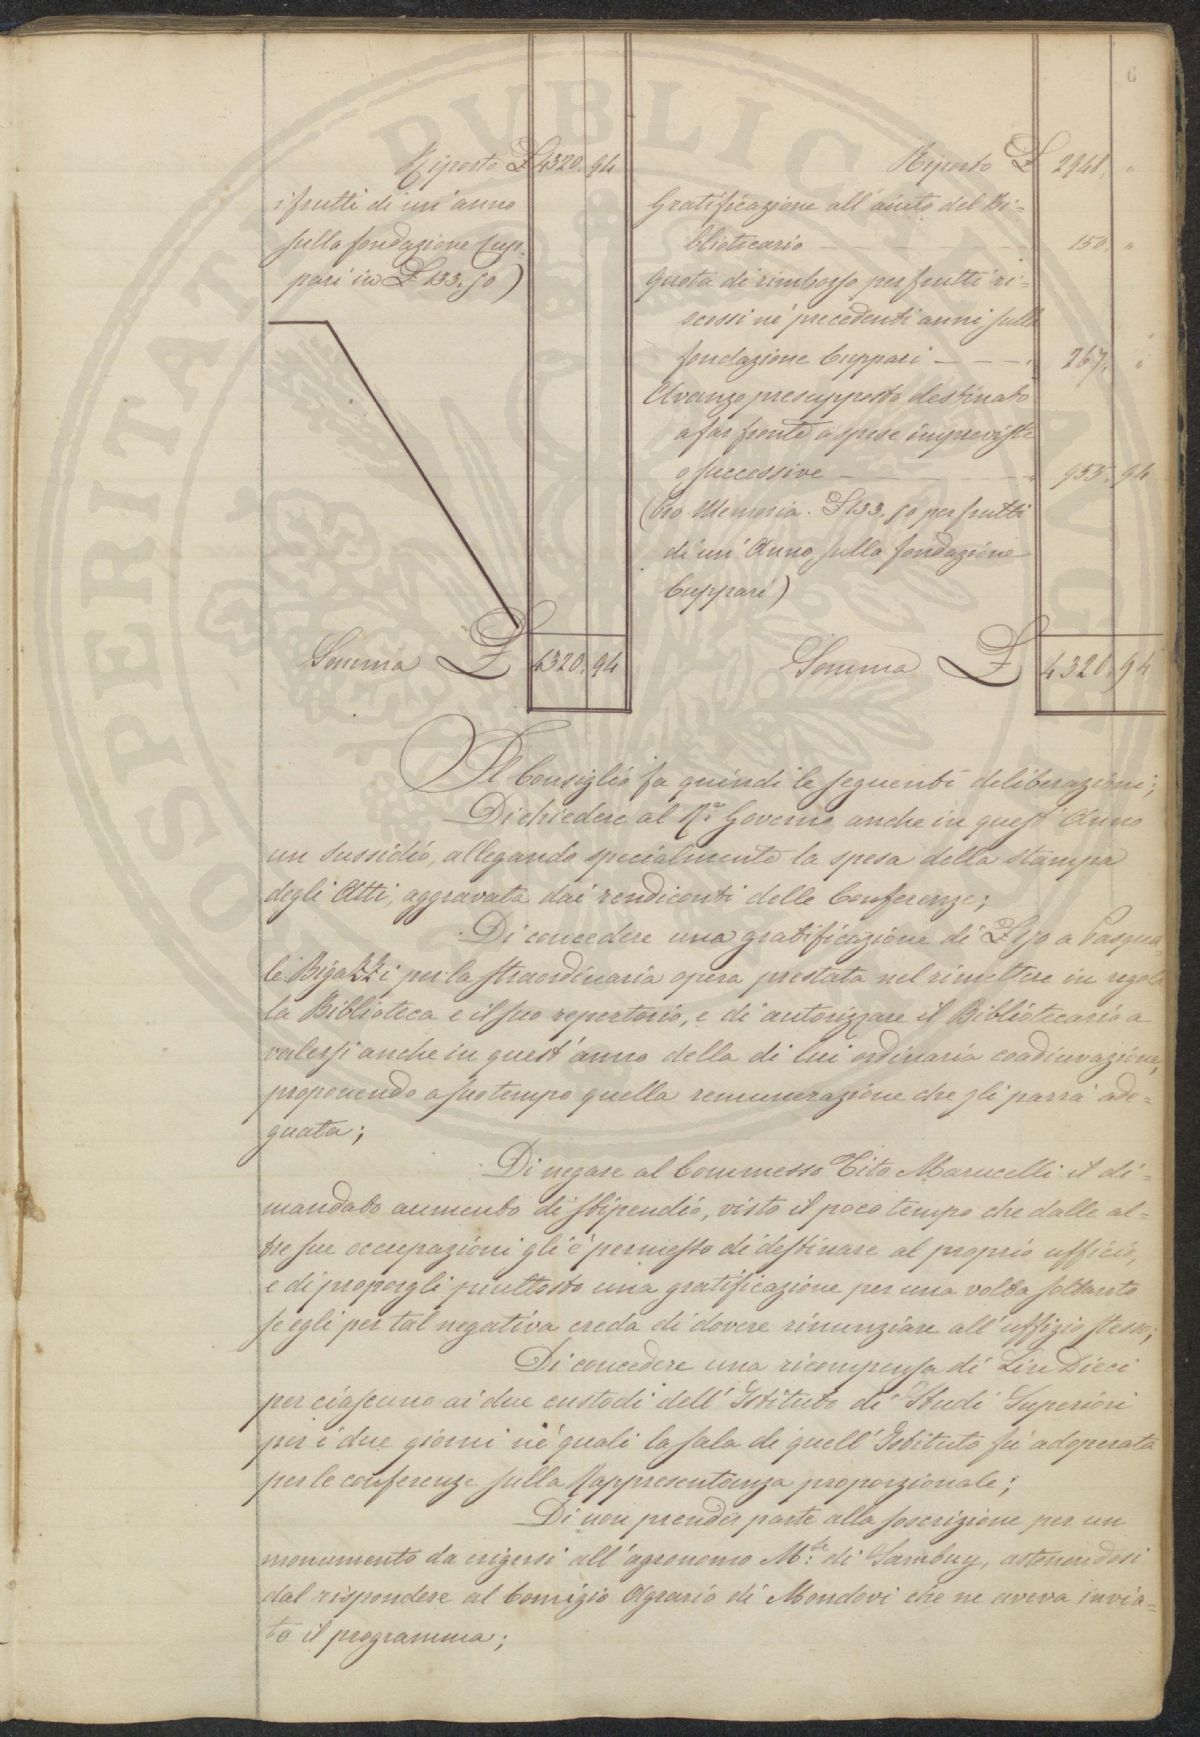 6
Riporto £ 4320. 94
i frutti di un'anno
sulla fondazione Cup-
pari in £ 133. 50)
Somma £ 4320. 94
Riporto £ 2948. "
Gratificazione all'aiuto del Bi=
bliotecario — 150. "
Quota di rimborso per frutti ri=
scossi ne' precedenti anni sulla
fondazione Cuppari — — — " 267. "
Avanzo presupposto destinato
a far fronte a spese impreviste
o successive — " 955. 94
(Pro-Memoria. £ 133. 50 per frutti
di un'Anno sulla fondazione
Cuppari)
Somma £ 4320. 94
Il Consiglio fa quindi le seguenti deliberazioni;
Di chiedere al R.º Governo anche in quest'Anno
un sussidio, allegando specialmente la spesa della stampa
degli Atti, aggravata dai rendiconti delle Conferenze;
Di concedere una gratificazione di £ 150 a Pasqua-
le Bigazzi per la straordinaria opera prestata nel rimettere in regola
la Biblioteca e il suo repertorio, e di autorizzare il Bibliotecario a
valersi anche in quest'anno della di lui ordinaria coadiuvazione,
proponendo a suo tempo quella remunerazione che gli parrà ade=
guata;
Di negare al Commesso Tito Marucelli il di=
mandato aumento di stipendio, visto il poco tempo che dalle al=
tre sue occupazioni gli è permesso di destinare al proprio ufficio,
e di proporgli piuttosto una gratificazione per una volta soltanto
se egli per tal negativa creda di dovere rinunziare all'uffizio stesso;
Di concedere una ricompensa di Lire Dieci
per ciascuno ai due custodi dell'Istituto di Studi Superiori
per i due giorni ne' quali la sala di quell'Istituto fu adoperata
per le conferenze sulla Rappresentanza proporzionale;
Di non prender parte alla soscrizione per un
monumento da erigersi all'agronomo M.se di Sambuy, astenendosi
dal rispondere al Comizio Agrario di Mondovì che ne aveva invia=
to il programma;